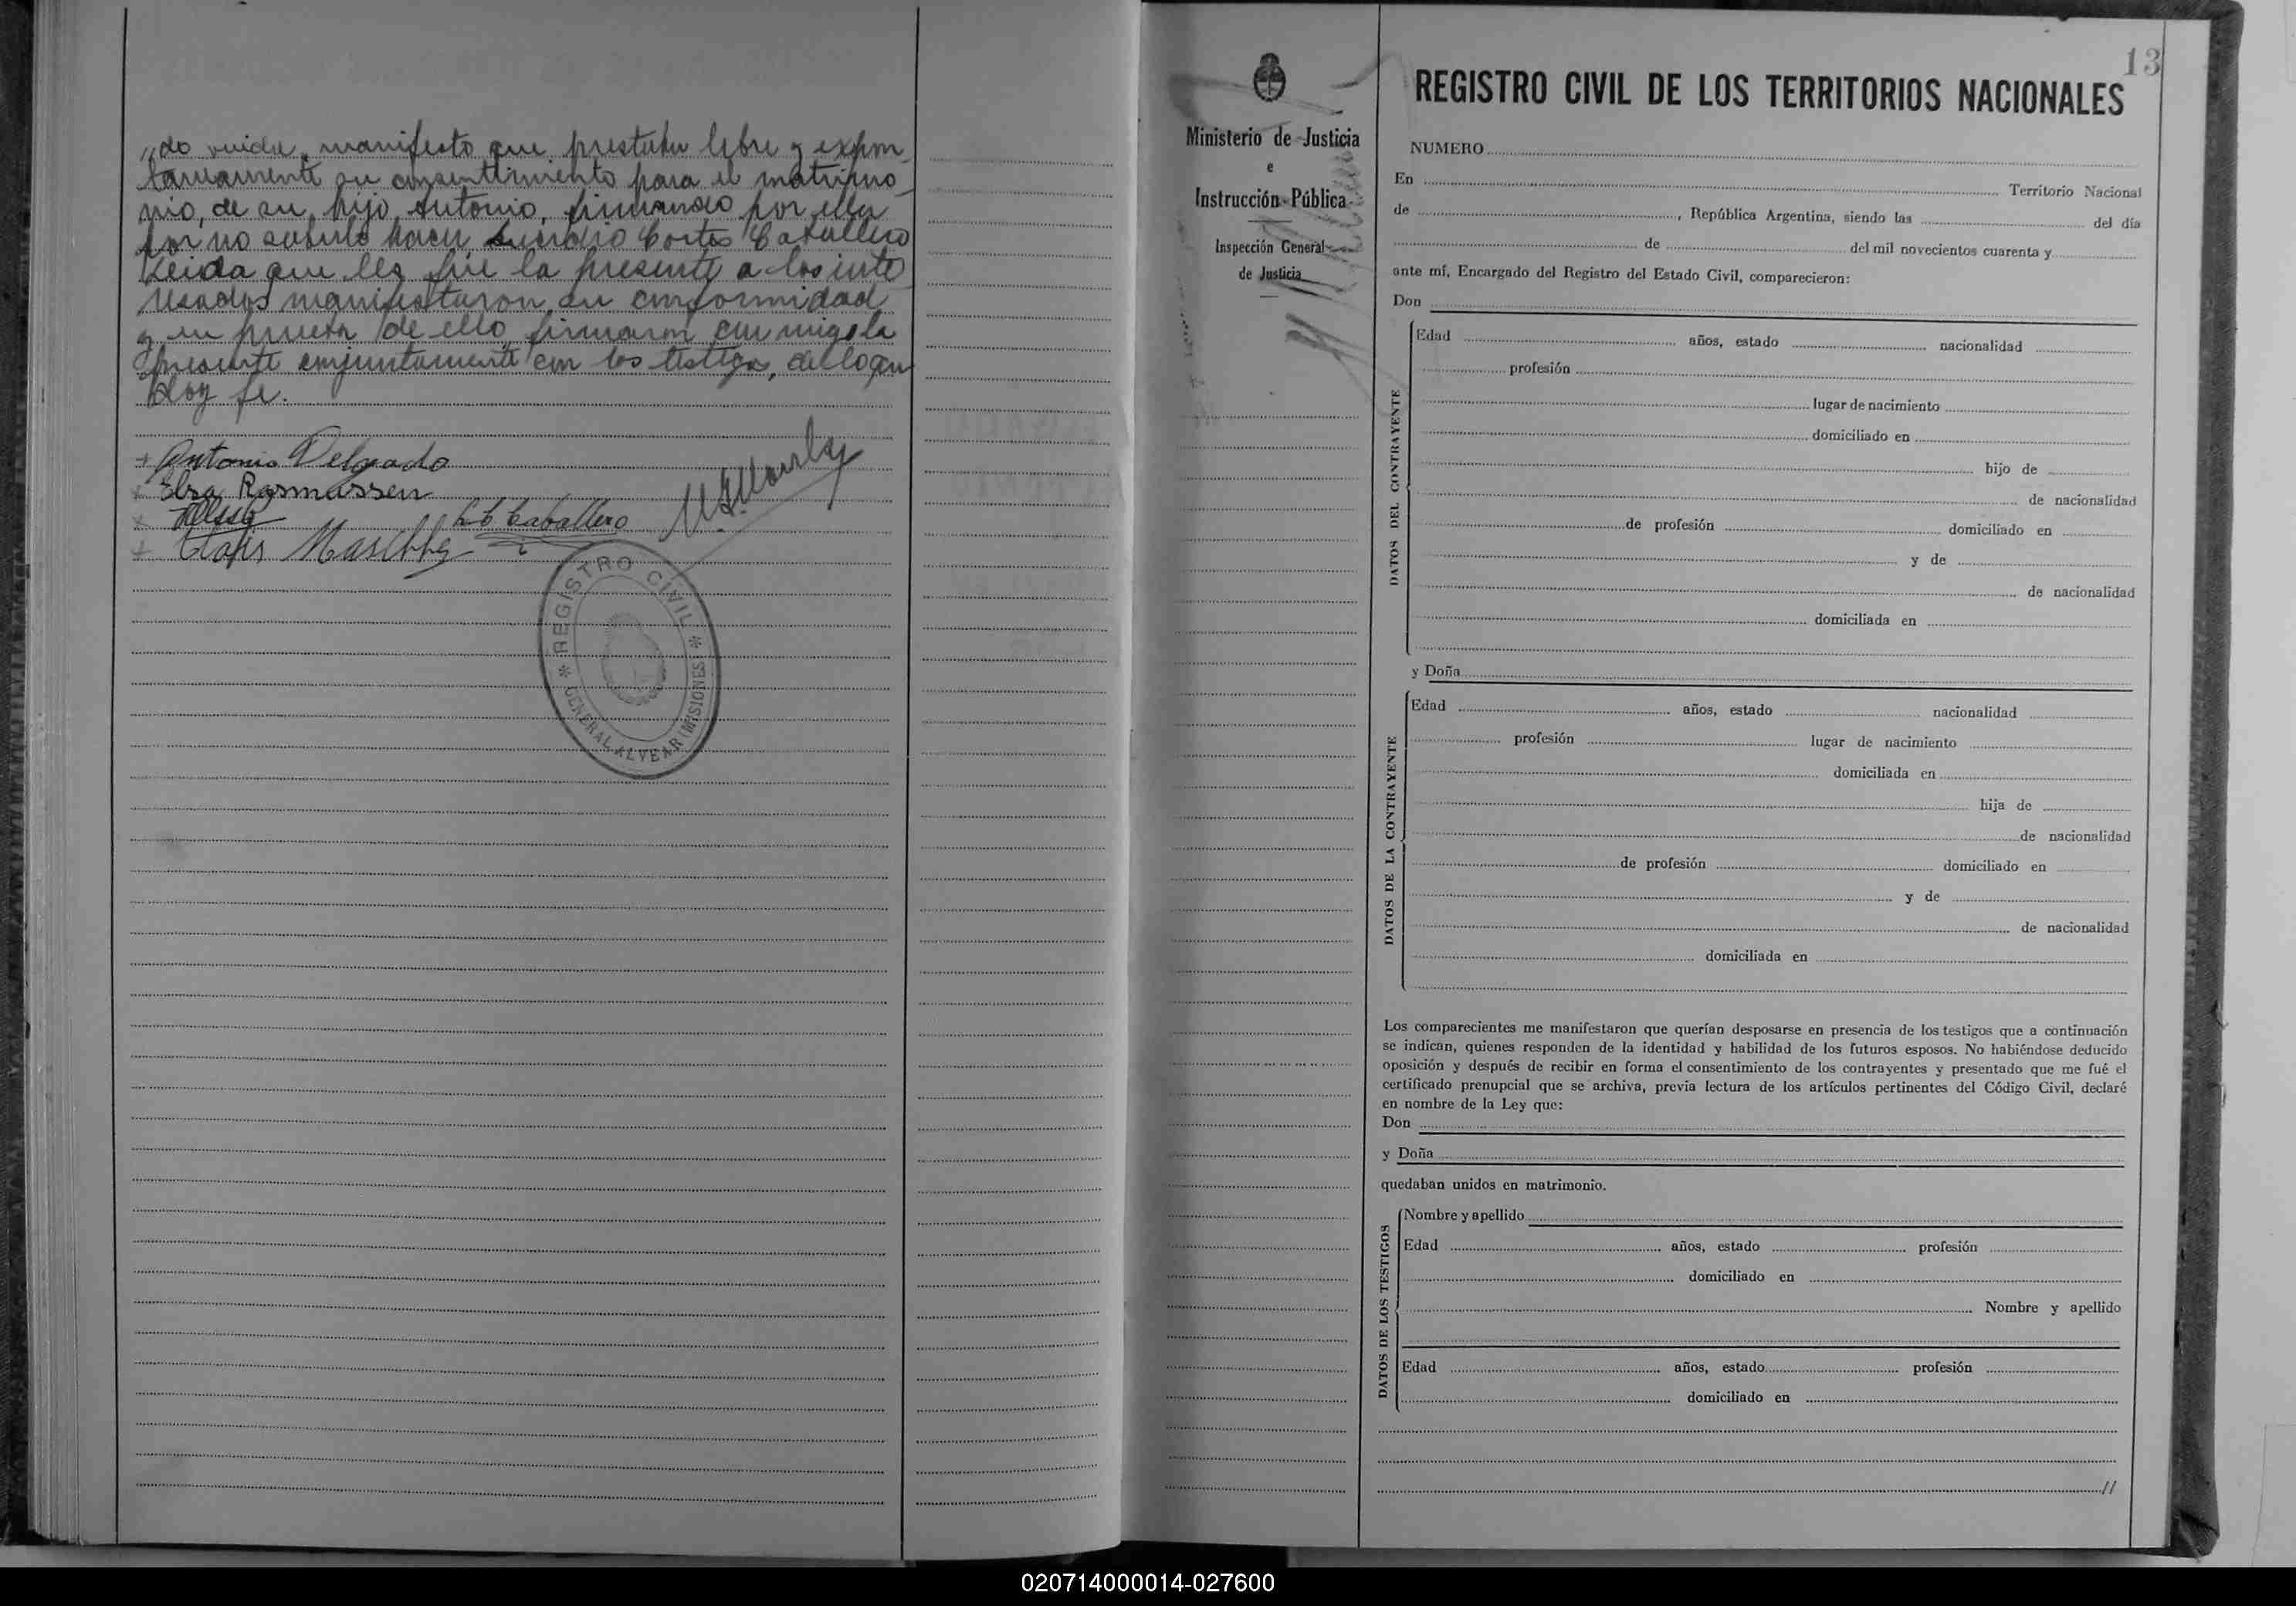 do viuda, manifesto que prestaba libre y expon
taneamente su consentimiento para el matrimo
nio, de su hijo Antonio, firmando por ella
por no saberlo hacer Cortes Caballero
Leida que les fue la presente a los inte
resados manifestaron su conformidad
y en prueba de ello, firmaron conmigo la
presente conjuntamente con los testigos, de lo que
doy fe.
Antonio Delgado
Elsa Rasmussen
Caballero
REGISTRO CIVIL * GENERAL ALVEAR (MISIONES) *
13
Ministerio de Justicia
e
Instrucción Pública
Inspección General
de Justicia
REGISTRO CIVIL DE LOS TERRITORIOS NACIONALES
NUMERO
En Territorio Nacional
de , República Argentina, siendo las del día
de del mil novecientos cuarenta y
ante mí, Encargado del Registro del Estado Civil, comparecieron:
Don
DATOS DEL CONTRAYENTE
Edad años, estado nacionalidad
profesión
lugar de nacimiento
domiciliado en
hijo de
de nacionalidad
de profesión domiciliado en
y de
de nacionalidad
domiciliada en
y Doña
DATOS DE LA CONTRAYENTE
Edad años, estado nacionalidad
profesión lugar de nacimiento
domiciliada en
hija de
de nacionalidad
de profesión domiciliado en
y de
de nacionalidad
domiciliada en
Los comparecientes me manifestaron que querían desposarse en presencia de los testigos que a continuación
se indican, quienes responden de la identidad y habilidad de los futuros esposos. No habiéndose deducido
oposición y después de recibir en forma el consentimiento de los contrayentes y presentado que me fué el
certificado prenupcial que se archiva, previa lectura de los artículos pertinentes del Código Civil, declaré
en nombre de la Ley que:
Don
y Doña
quedaban unidos en matrimonio.
DATOS DE LOS TESTIGOS
Nombre y apellido
Edad años, estado profesión
domiciliado en
Nombre y apellido
Edad años, estado profesión
domiciliado en
//
020714000014-027600